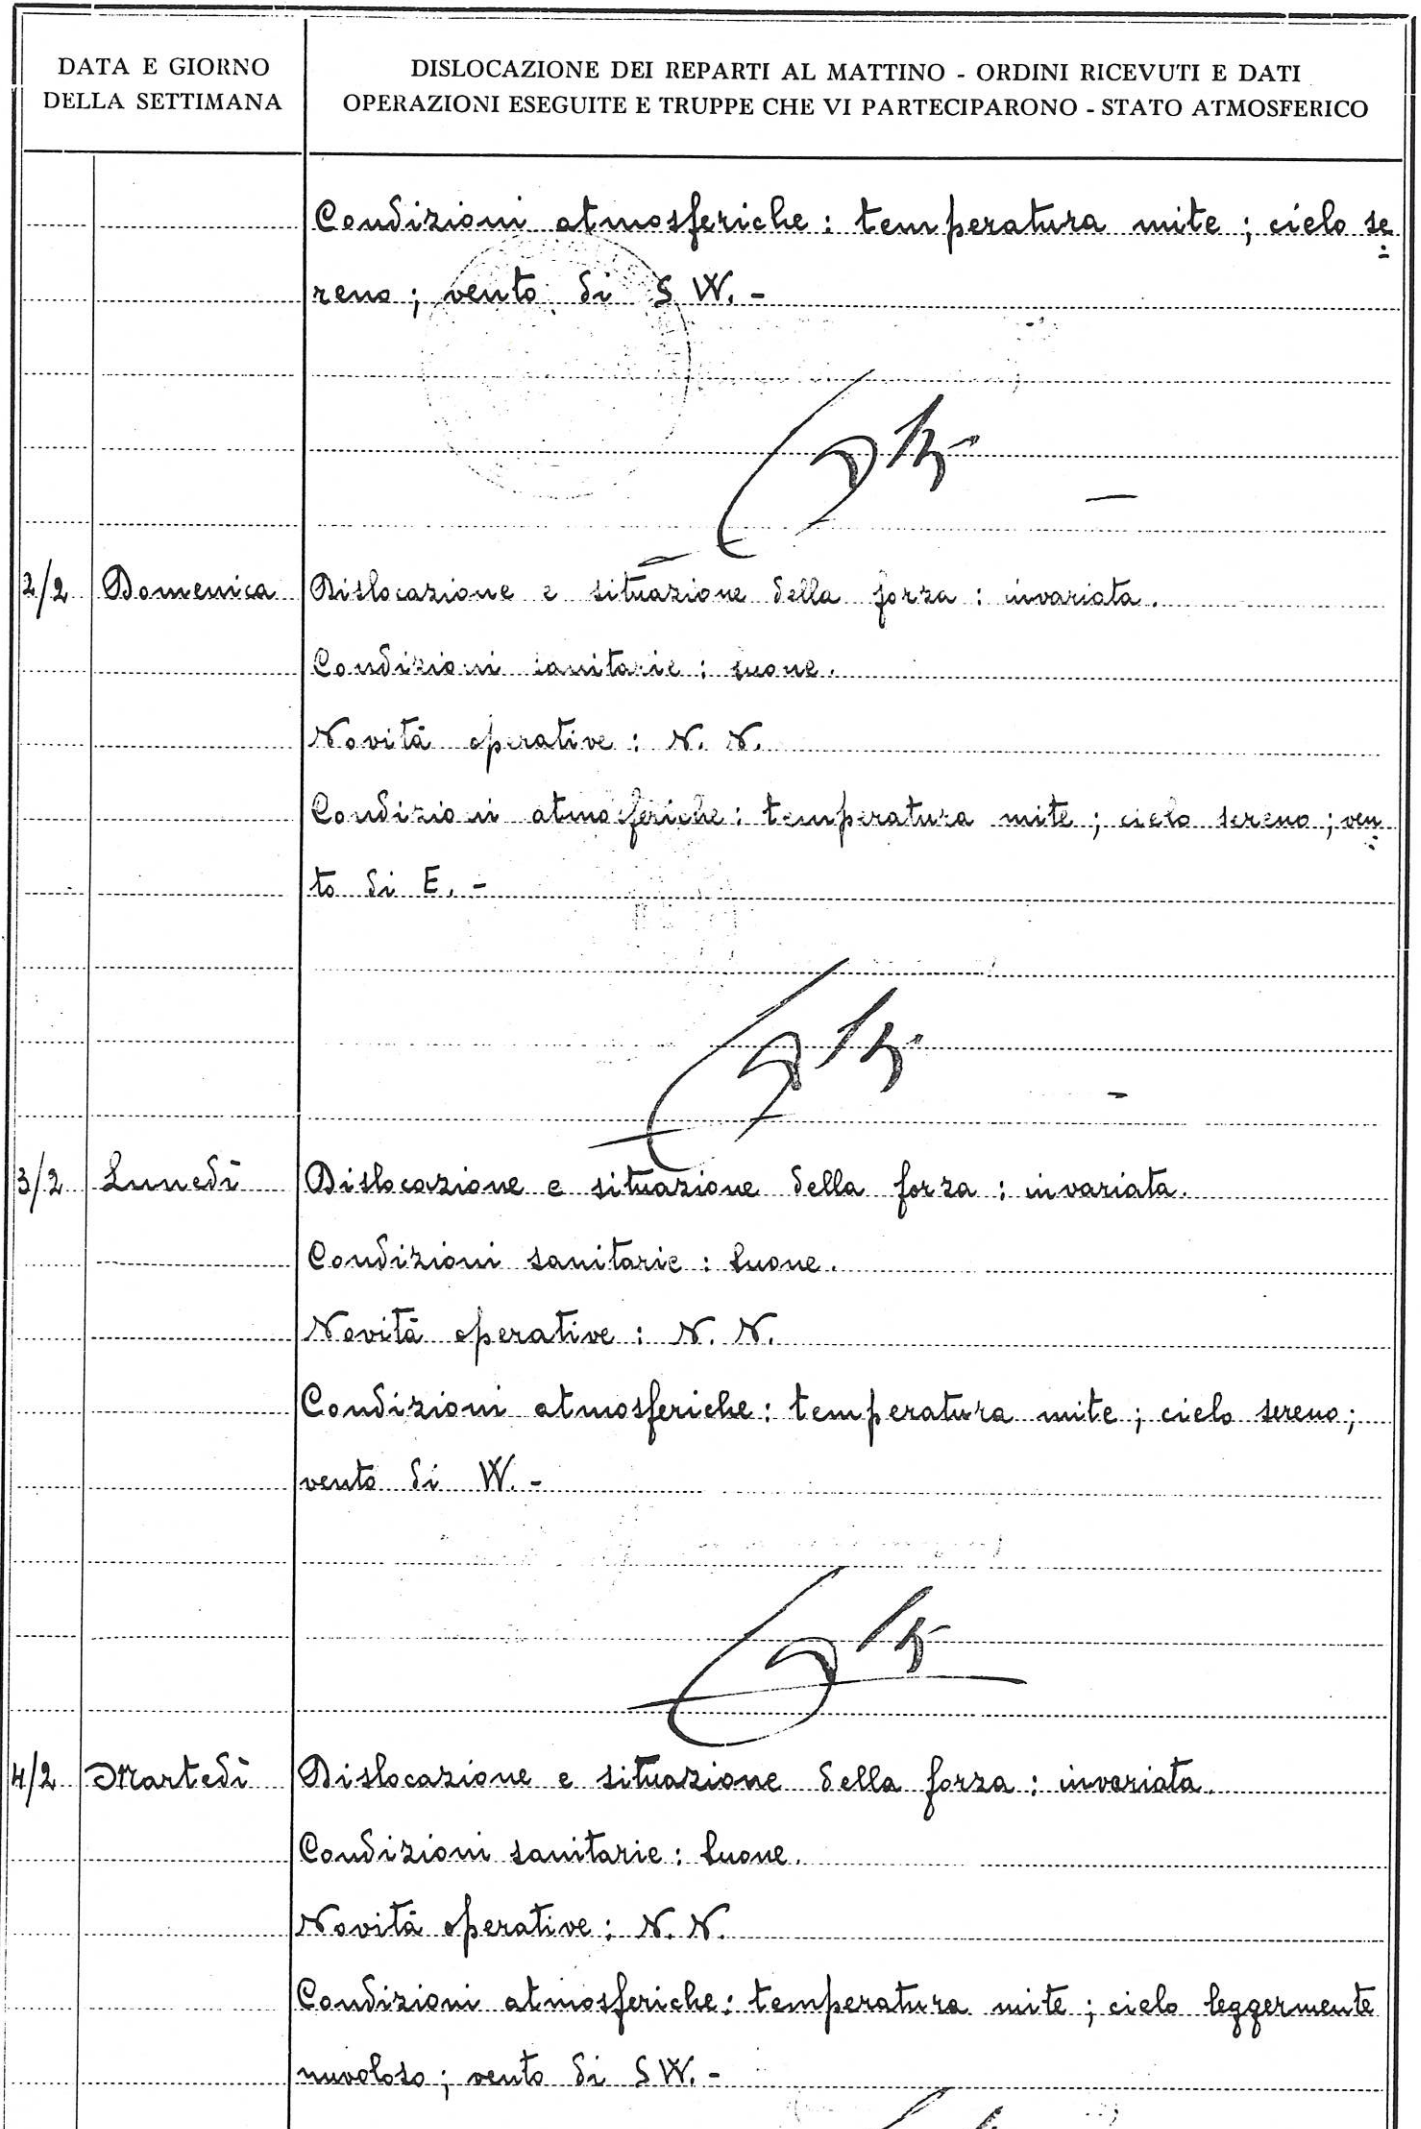 DATA E GIORNO
DELLA SETTIMANA
DISLOCAZIONE DEI REPARTI AL MATTINO - ORDINI RICEVUTI E DATI
OPERAZIONI ESEGUITE E TRUPPE CHE VI PARTECIPARONO - STATO ATMOSFERICO
Condizioni atmosferiche : temperatura mite ; cielo se=
reno ; vento di S W. -
2/2 Domenica Dislocazione e situazione della forza : invariata.
Condizioni sanitarie : buone.
Novità operative : N. N.
Condizioni atmosferiche : temperatura mite ; cielo sereno ; ven=
to di E. -
3/2 Lunedì Dislocazione e situazione della forza : invariata.
Condizioni sanitarie : buone.
Novità operative : N. N.
Condizioni atmosferiche : temperatura mite ; cielo sereno ;
vento di W. -
4/2 Martedì Dislocazione e situazione della forza : invariata.
Condizioni sanitarie : buone.
Novità operative : N. N.
Condizioni atmosferiche : temperatura mite ; cielo leggermente
nuvoloso ; vento di S W. -